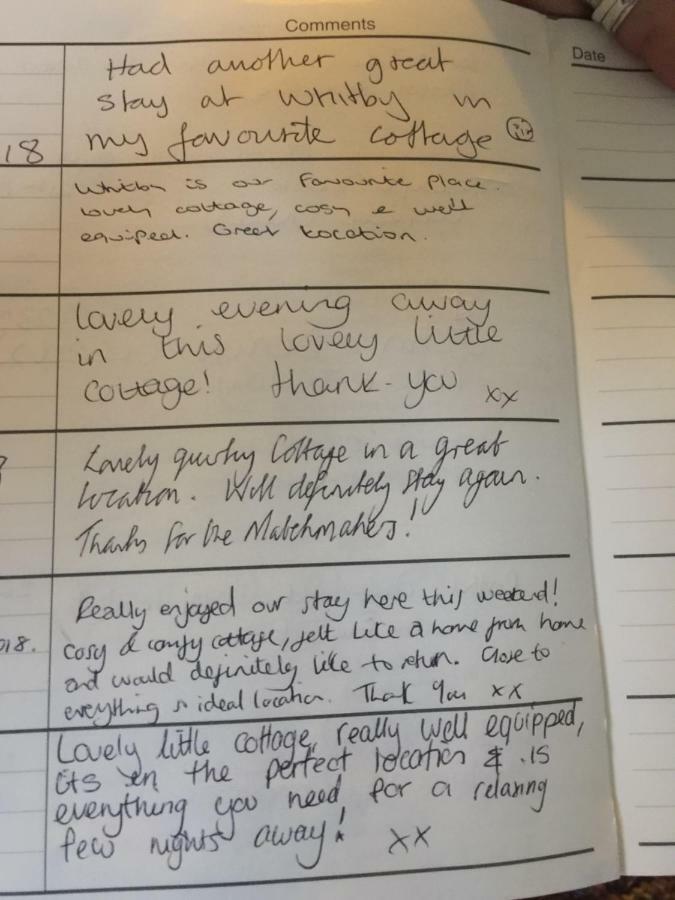 Comments
Date
Had another great
stay at Whitby in
18
my favourite cottage
Whitby is our Favourite Place.
lovely cottage, cosy & well
equiped. Great Location.
Lovely evening away
in this lovely little
Cottage! Thank-you xx
Lovely quirky Cottage in a great
location. Will definitely stay again.
Thanks for the Matchmakers!
Really enjoyed our stay here this weekend!
018.
Cosy & comfy cottage, felt like a home from home
and would definitely like to return. Close to
everything & ideal location. Thank you xx
Lovely little cottage, really well equipped,
its in the perfect location & is
everything you need for a relaxing
few nights away! xx